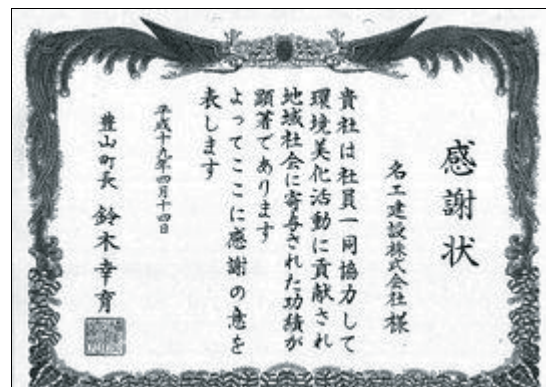 感謝状
名工建設株式会社 様
貴社は社員一同協力して
環境美化活動に貢献され
地域社会に寄与された功績が
顕著であります
よってここに感謝の意を
表します
平成十九年四月十四日
豊山町長 鈴木幸育